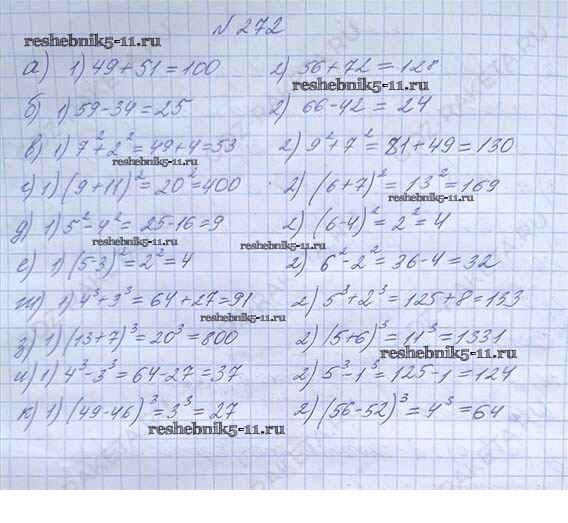 № 272
reshebnik5-11.ru
а) 1) 49+51=100 2) 56+72=128
reshebnik5-11.ru
б) 1) 59-34=25 2) 66-42=24
в) 1) 7²+2²=49+4=53 2) 9²+7²=81+49=130
reshebnik5-11.ru
г) 1) (9+11)²=20²=400 2) (6+7)²=13²=169
reshebnik5-11.ru
д) 1) 5²-4²=25-16=9 2) (6-4)²=2²=4
reshebnik5-11.ru
е) 1) (5-3)²=2²=4 2) 6²-2²=36-4=32
ж) 1) 4³+3³=64+27=91 2) 5³+2³=125+8=133
з) 1) (13+7)³=20³=800 2) (5+6)³=11³=1331
reshebnik5-11.ru
и) 1) 4³-3³=64-27=37 2) 5³-1³=125-1=124
к) 1) (49-46)³=3³=27 2) (56-52)³=4³=64
reshebnik5-11.ru